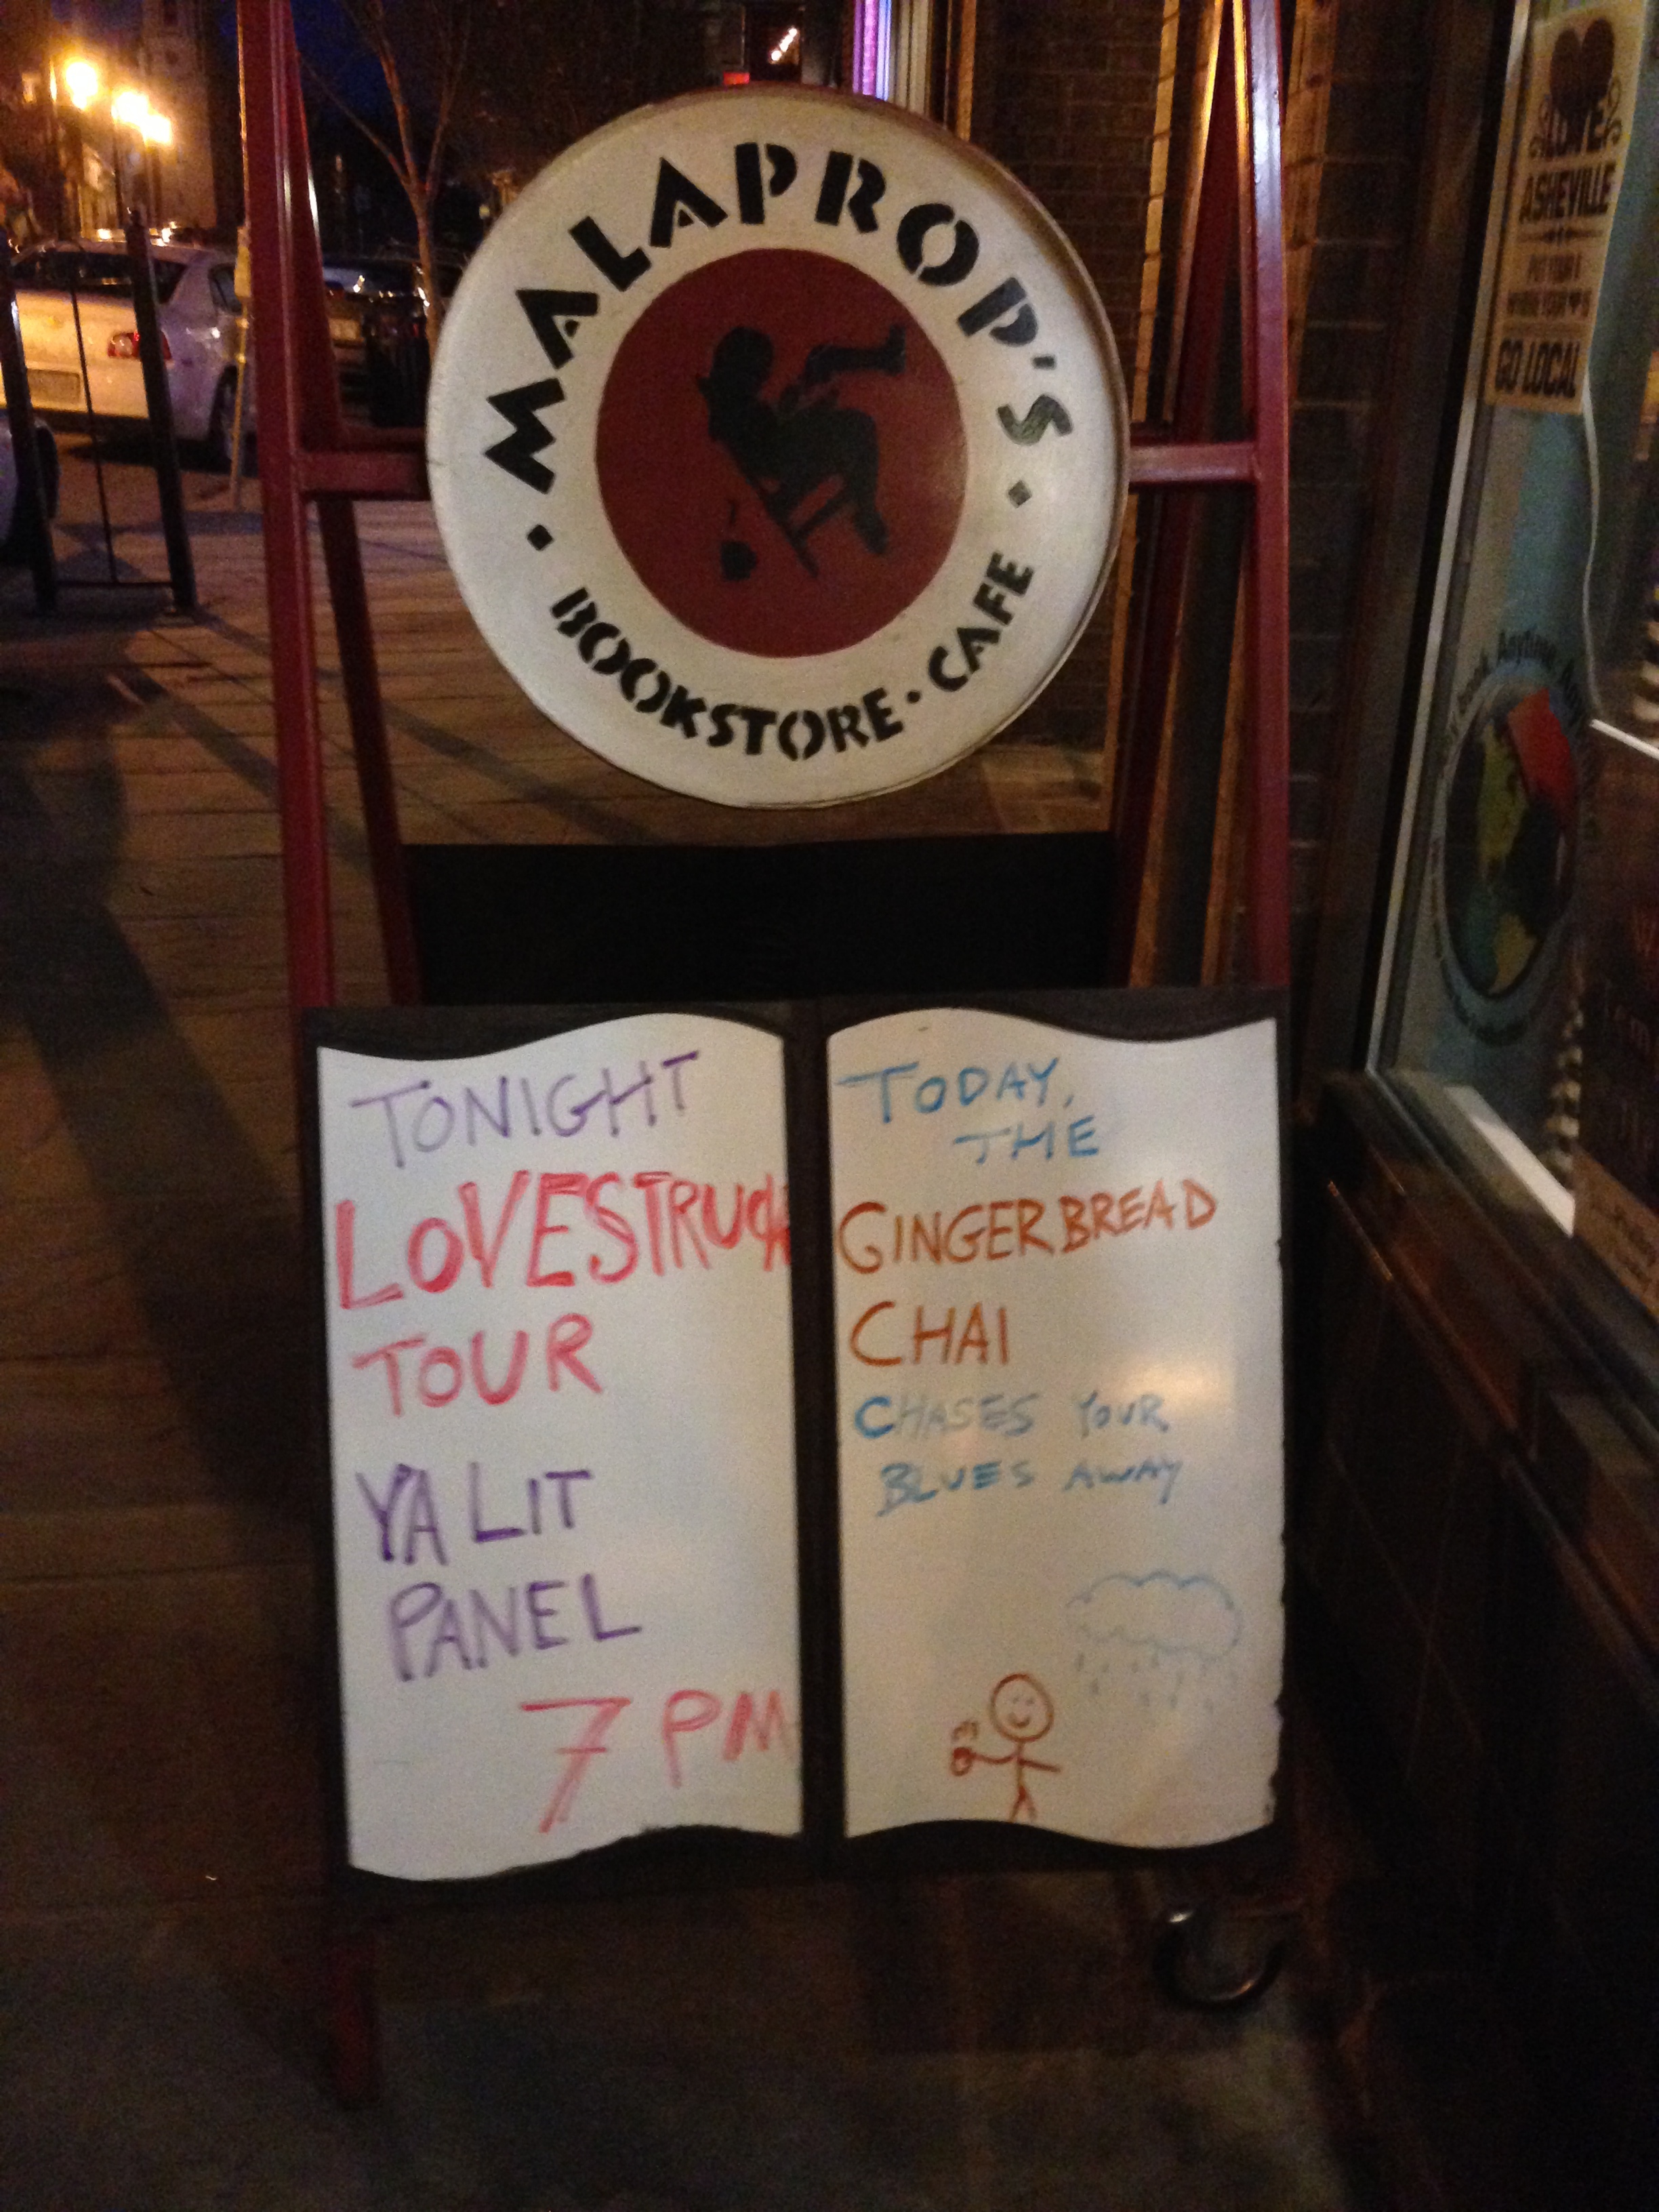 MALAPROP'S
· BOOKSTORE · CAFE ·
TONIGHT
LOVESTRUCK
TOUR
YA LIT
PANEL
7 PM
TODAY,
THE
GINGERBREAD
CHAI
CHASES YOUR
BLUES AWAY
LOVE
ASHEVILLE
PUT YOUR $
WHERE YOUR ♥ IS
GO LOCAL